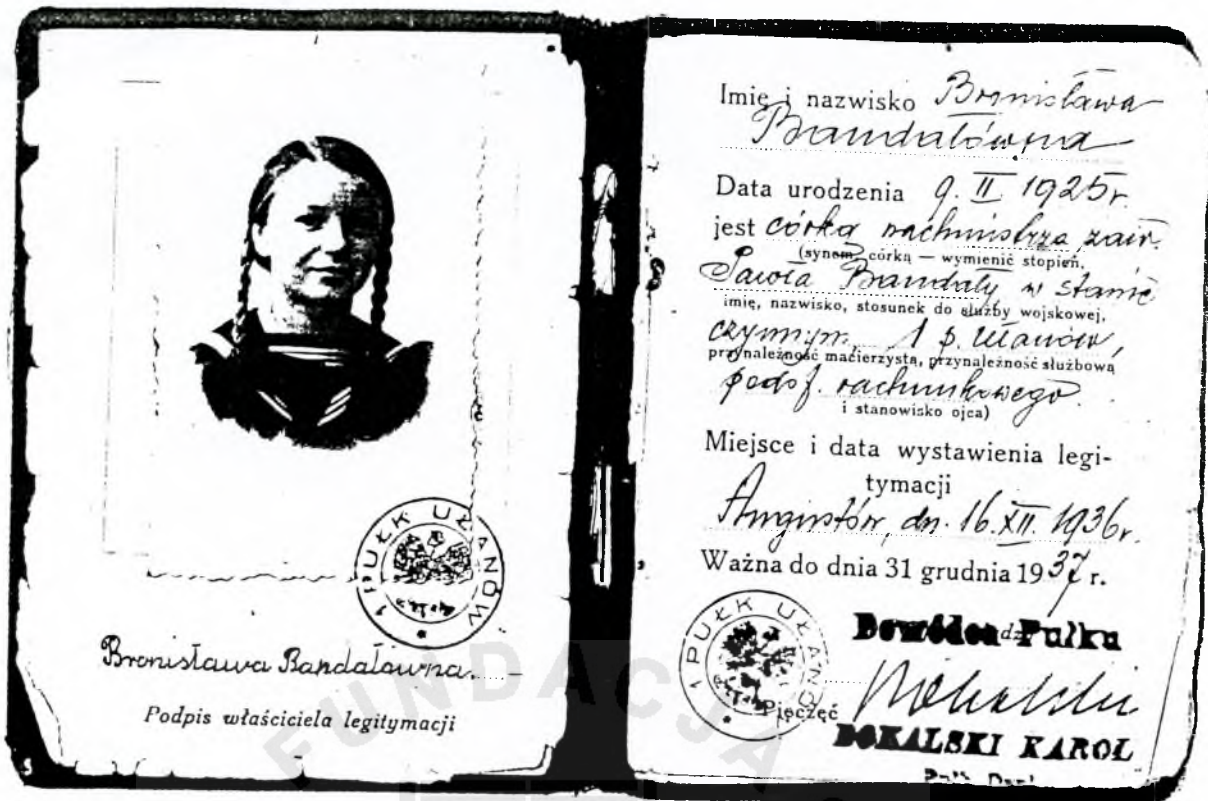 1 PUŁK UŁANÓW
Bronisława Bandalówna.
Podpis właściciela legitymacji
Imię i nazwisko Bronisława
Bandalówna
Data urodzenia 9. II. 1925r.
jest córką wachmistrza zaw.
(synem, córką — wymienić stopień,
Pawła Bandały w stanie
imię, nazwisko, stosunek do służby wojskowej,
czynnym. 1 p. Ułanów,
przynależność macierzysta, przynależność służbową
podof. rachunkowego.
i stanowisko ojca)
Miejsce i data wystawienia legi-
tymacji
Augustów, dn. 16. XII. 1936r.
Ważna do dnia 31 grudnia 1937 r.
1 PUŁK UŁANÓW
Pieczęć
Dowódca Pułku
BOKALSKI KAROL
FUNDACJA